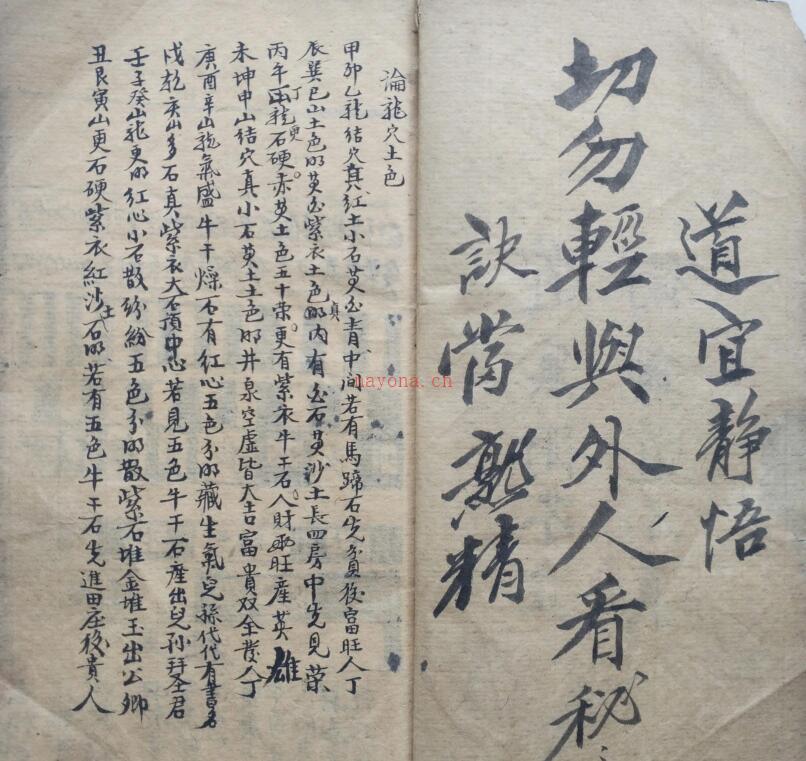 道宜静悟
切勿輕與外人看秘
訣當熟精
論龍穴土色
甲卯乙龍結穴真紅土小石黄白青中间若有馬蹄石先貧後富旺人丁
辰巽巳山土色明黄白紫衣土色明真内有白石黄沙土長四房中先見荣
丙午丁龍更石硬赤黄土色五十荣更有紫衣牛干石人財兩旺産英雄
未坤申山結穴真小石黄土土色明井泉空虚皆大吉富貴双全發人丁
庚酉辛山龍氣盛牛干燥石有红心五色分明藏生氣兒孫代代有書名
戌乾亥山多石真紫衣大石預中心若見五色牛干石産出兒孙拜圣君
壬子癸山龍更明红心小石散紛紛五色分明散紫石堆金堆玉出公卿
丑艮寅山更石硬紫衣紅沙土石明若有五色牛干石先進田庄後貴人
nayona.cn